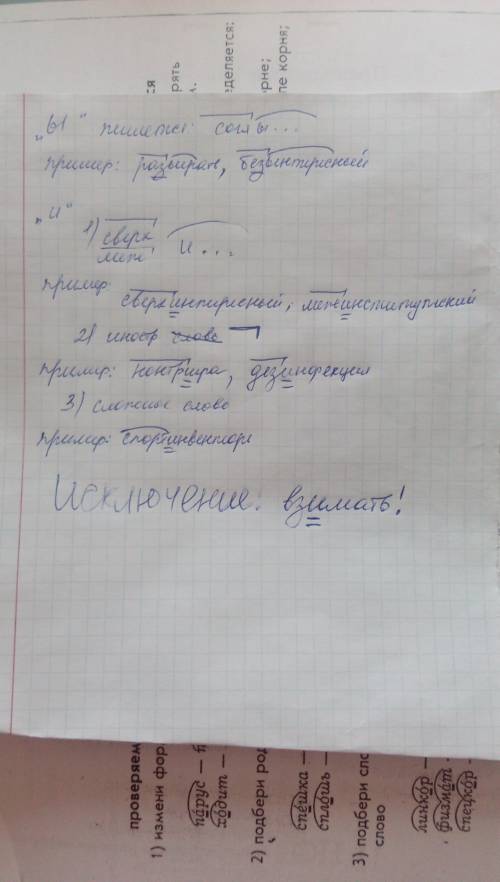 „Ы“ пишется: согл ы...
пример: разыграть, безынтересный
„И“
1) сверх
меж и...
пример:
сверхинтересный, межинститутский
2) иностр слово ¬
пример: контригра, дезинфекция
3) сложное слово
пример: спортинвентарь
Исключение: взимать!
ся
рять
деляется:
рне;
ле корня;
проверяем
1) измени фор
парус —
ходит —
2) подбери род
спешка —
сплошь —
3) подбери сло
слово
линкор —
физмат
спецкор -